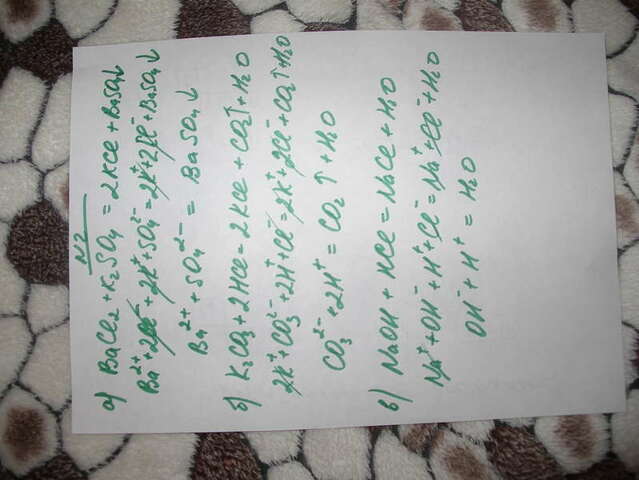 N2
а) BaCl₂ + K₂SO₄ = 2KCl + BaSO₄↓
Ba²⁺ + 2Cl⁻ + 2K⁺ + SO₄²⁻ = 2K⁺ + 2Cl⁻ + BaSO₄↓
Ba²⁺ + SO₄²⁻ = BaSO₄↓
б) K₂CO₃ + 2HCl = 2KCl + CO₂↑ + H₂O
2K⁺ + CO₃²⁻ + 2H⁺ + Cl⁻ = 2K⁺ + 2Cl⁻ + CO₂↑ + H₂O
CO₃²⁻ + 2H⁺ = CO₂↑ + H₂O
в) NaOH + HCl = NaCl + H₂O
Na⁺ + OH⁻ + H⁺ + Cl⁻ = Na⁺ + Cl⁻ + H₂O
OH⁻ + H⁺ = H₂O